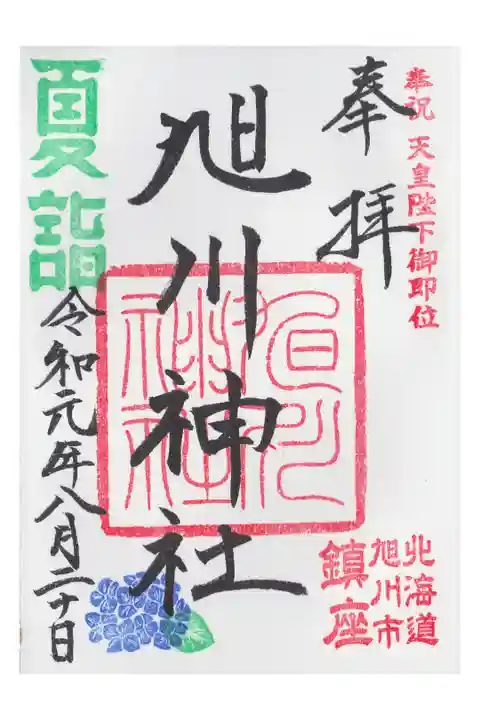 奉祝 天皇陛下御即位
奉拝
北海道
旭川市
鎮座
旭川神社
旭川神社
夏詣
令和元年八月二十日